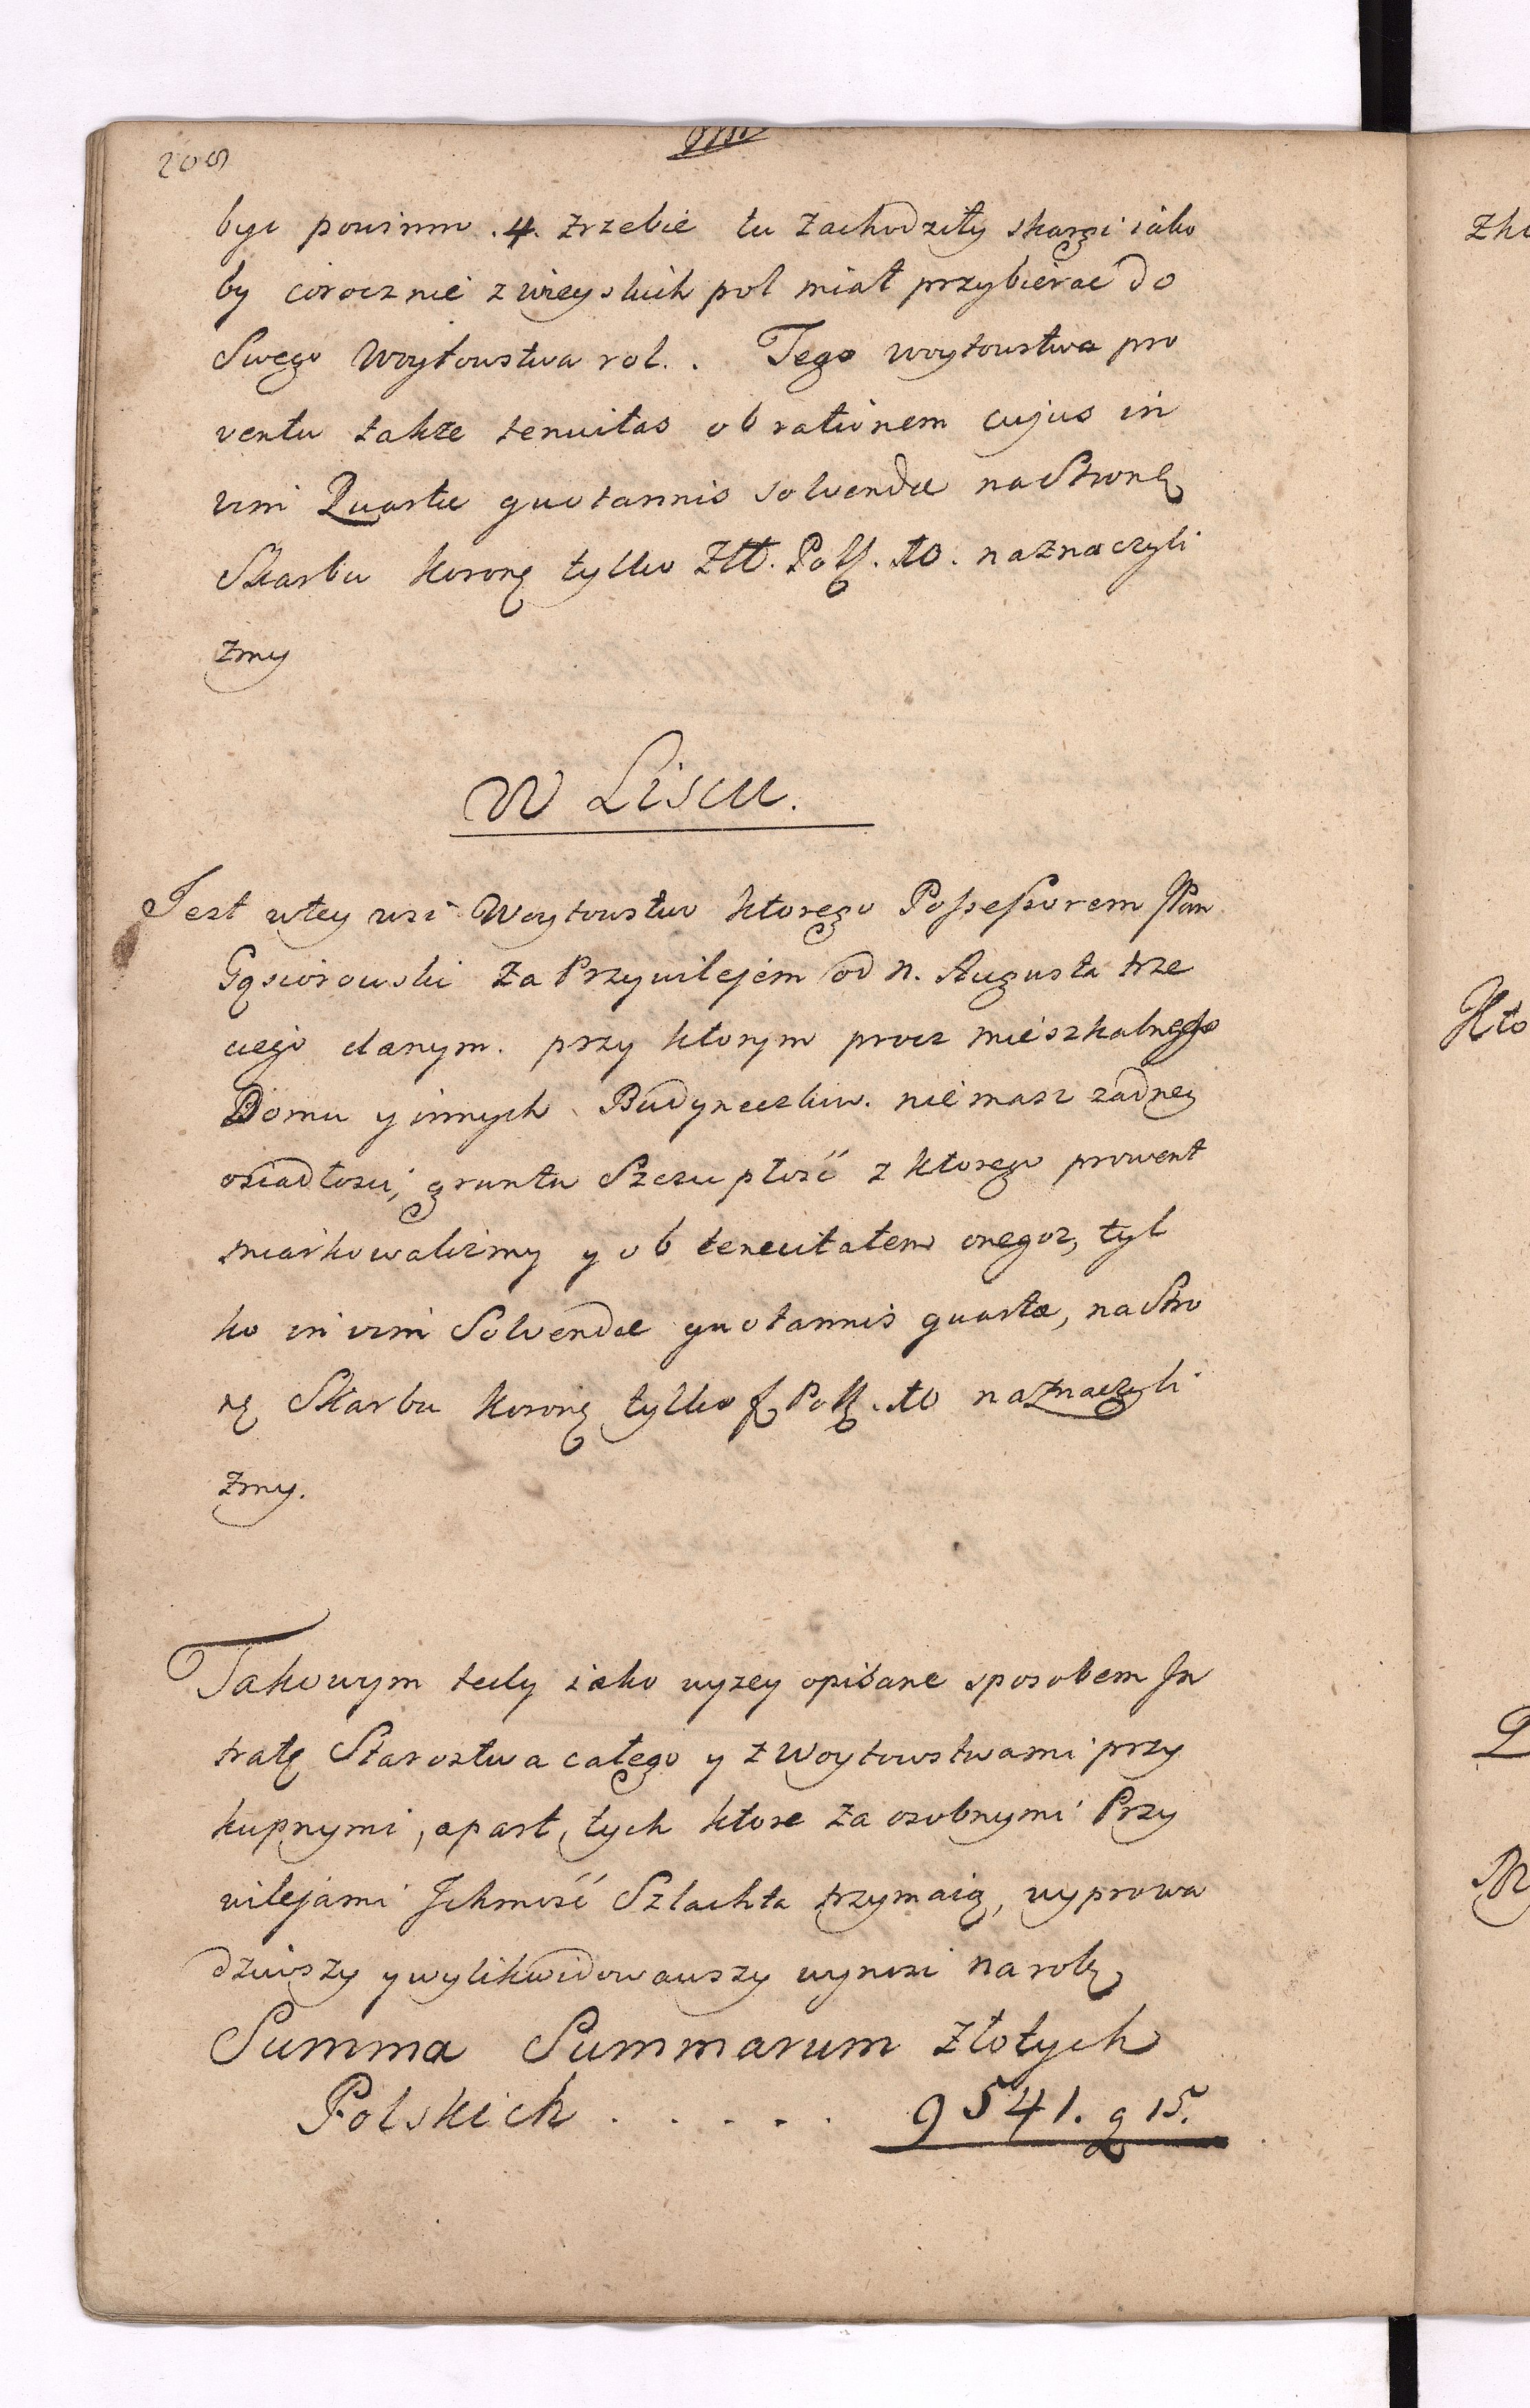 208
być powinno .4. Zrzebie tu Zachodziły skargi iako
by corocznie z wieyskich pol miał przybierac do
Swego Woytowstwa rol. . Tego woytowstwa pro
ventu także tenuitas ob rationem cujus in
vim Quartæ quotannis solvendæ na Stronę
Skarbu Koronę tylko Złt. Pols. 10. naznaczyli
zmy
W Liscu.
Jest w tey wsi Woytowstwo ktorego Possessorem JPan
Gąsiorowski za Przywilejem od N. Augusta trze
ciego danym. przy ktorym procz mieszkalnego
Domu y innych Budyneczkow. nie masz zadney
osiadłosci, gruntu Szczupłość z ktorego prowent
miarkowalizmy y ob tenuitatem onegoz, tyl
ko in vim Solvendæ quotannis quartæ, na Stro
nę Skarbu Koronę tylko f. Pols. 10 naznaczyli
zmy.
Takowym tedy iako wyzey opisane sposobem In
tratę Starostwa całego y z Woytowstwami przy
kupnymi, apart, tych ktore za osobnymi Przy
wilejami Ichmość Szlachta trzymaią, wyprowa
dziwszy y wylikwidowawszy wynosi na rok
Summa Summarum Złotych
Polskich . . . . . 9541. g 15.
Zho
Kto